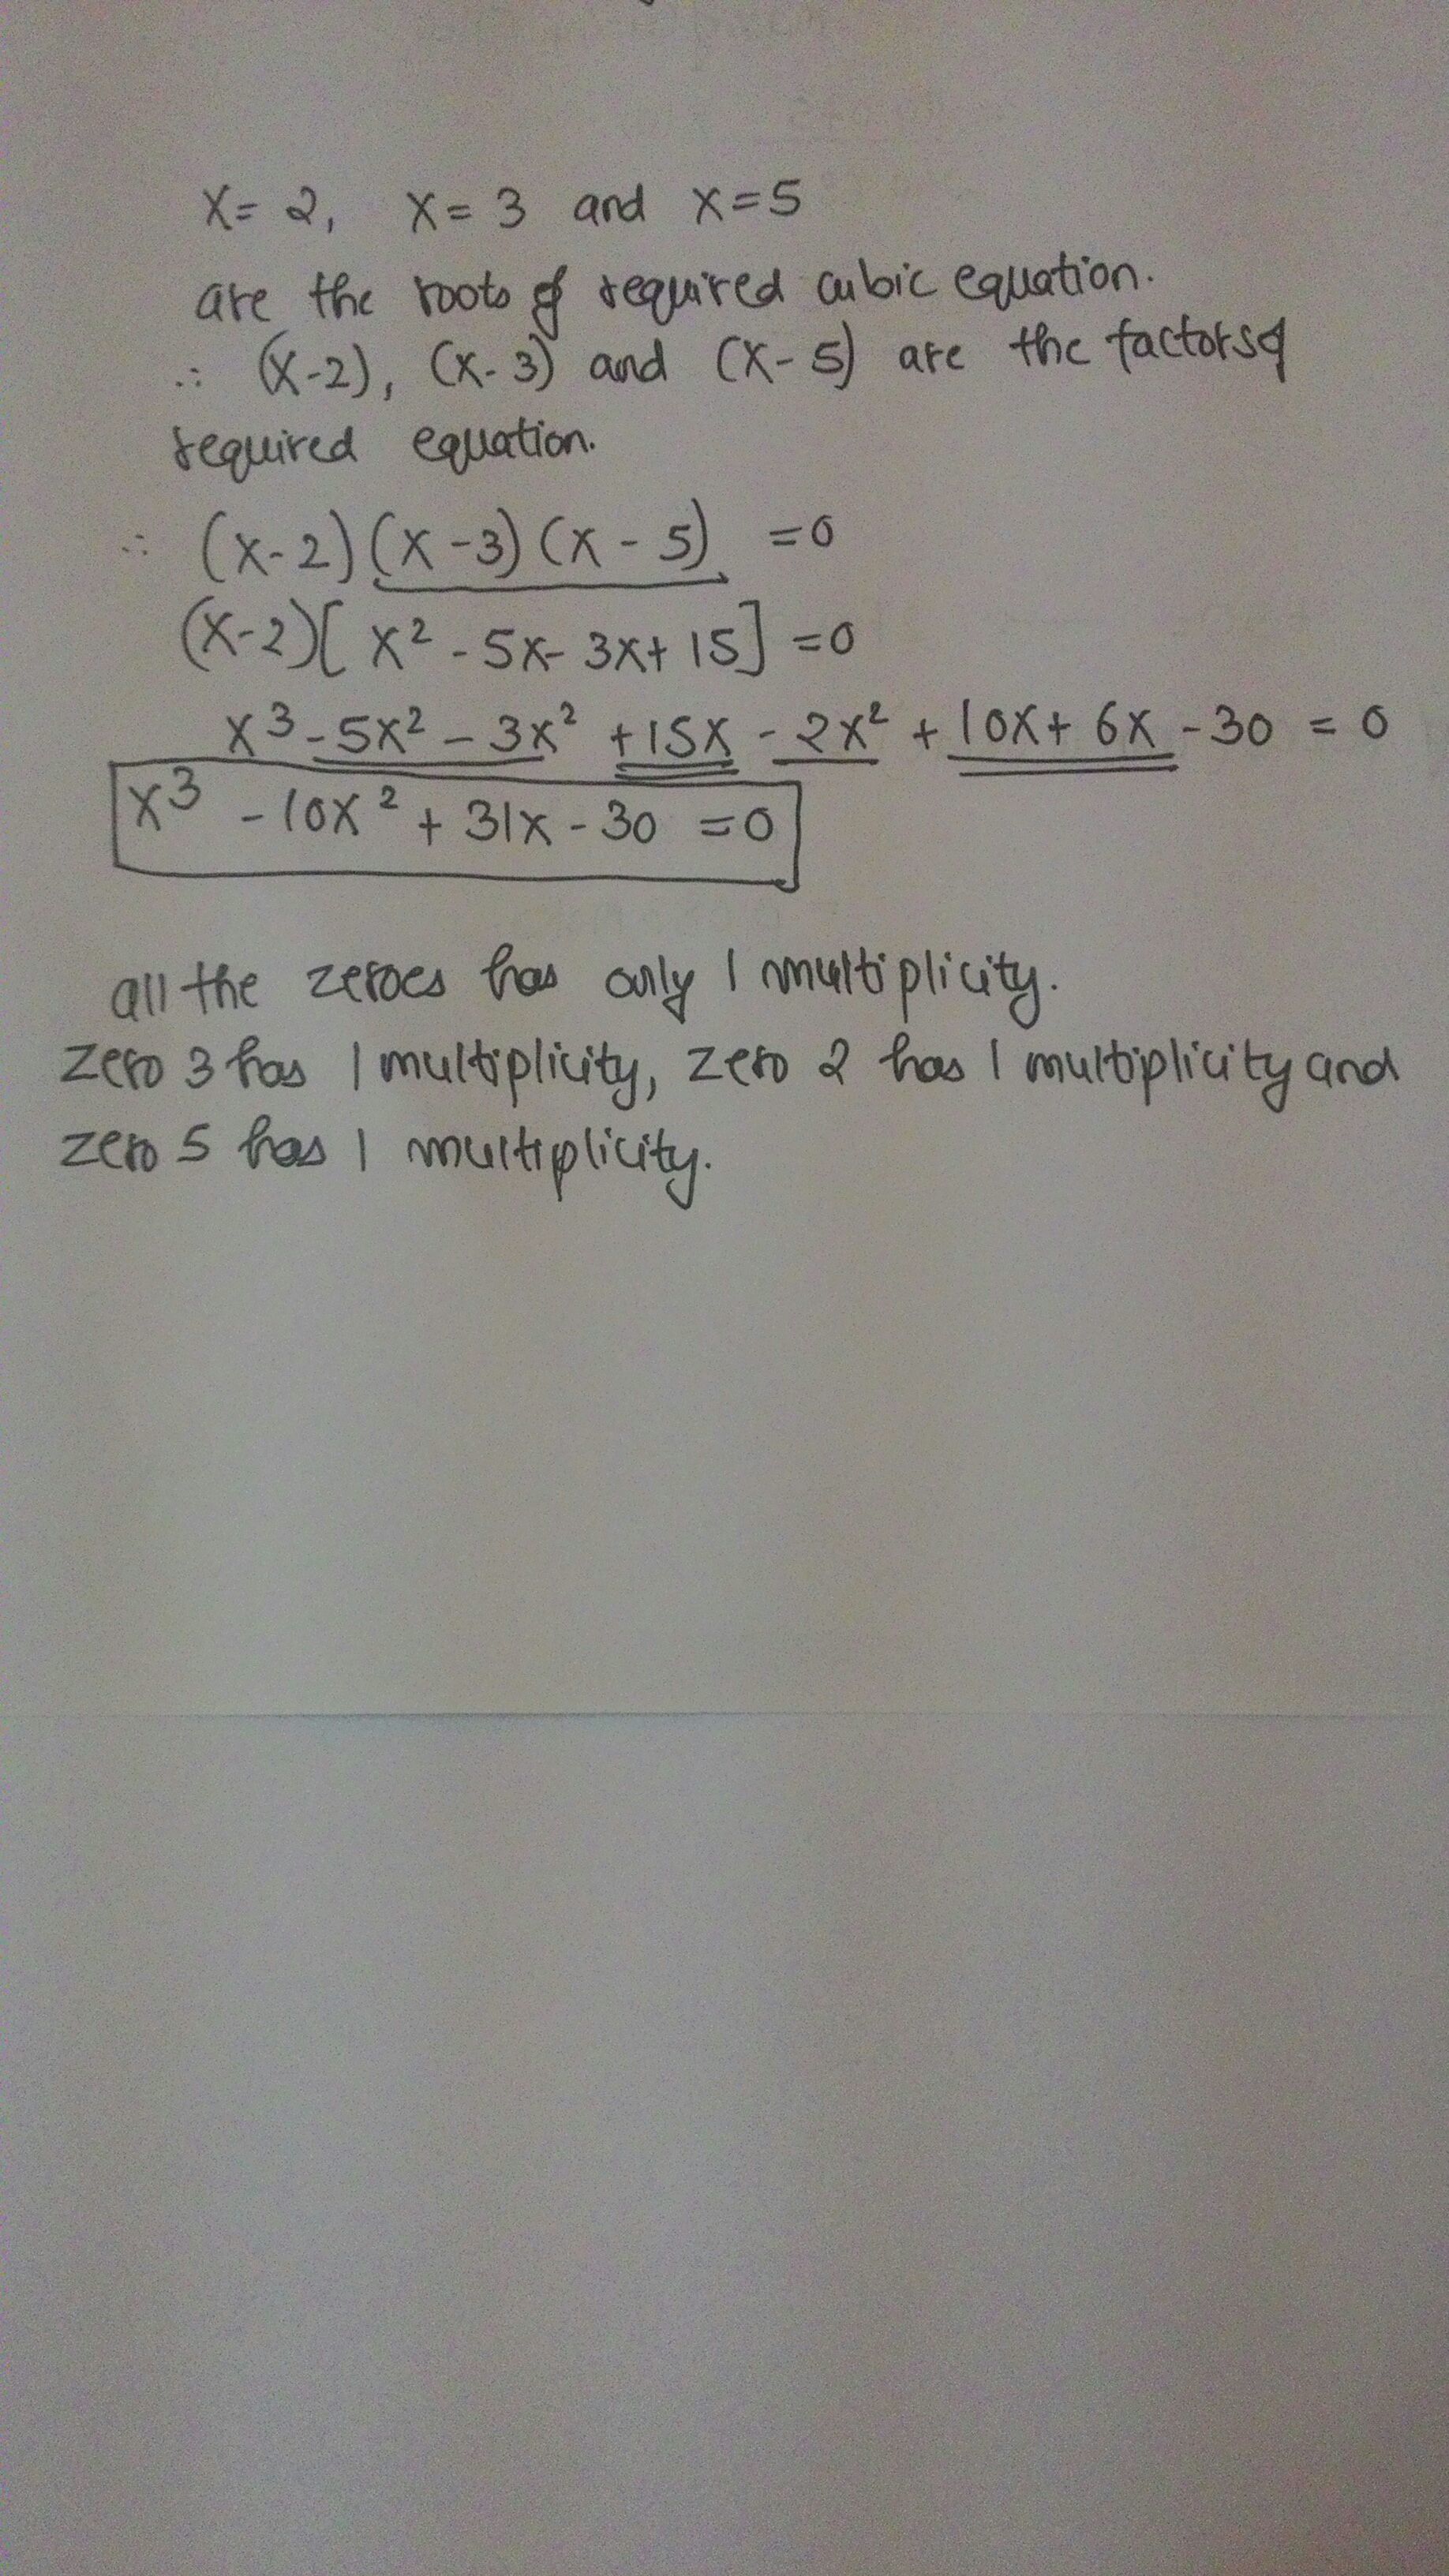 x = 2, x = 3 and x = 5
are the roots of required cubic equation.
∴ (x-2), (x-3) and (x-5) are the factors of
required equation.
∴ (x-2)(x-3)(x-5) =0
(x-2)[x² -5x-3x+15] =0
x³-5x²-3x² +15x -2x² +10x+6x -30 = 0
x³ -10x² +31x -30 =0
all the zeroes has only 1 multiplicity.
zero 3 has 1 multiplicity, zero 2 has 1 multiplicity and
zero 5 has 1 multiplicity.